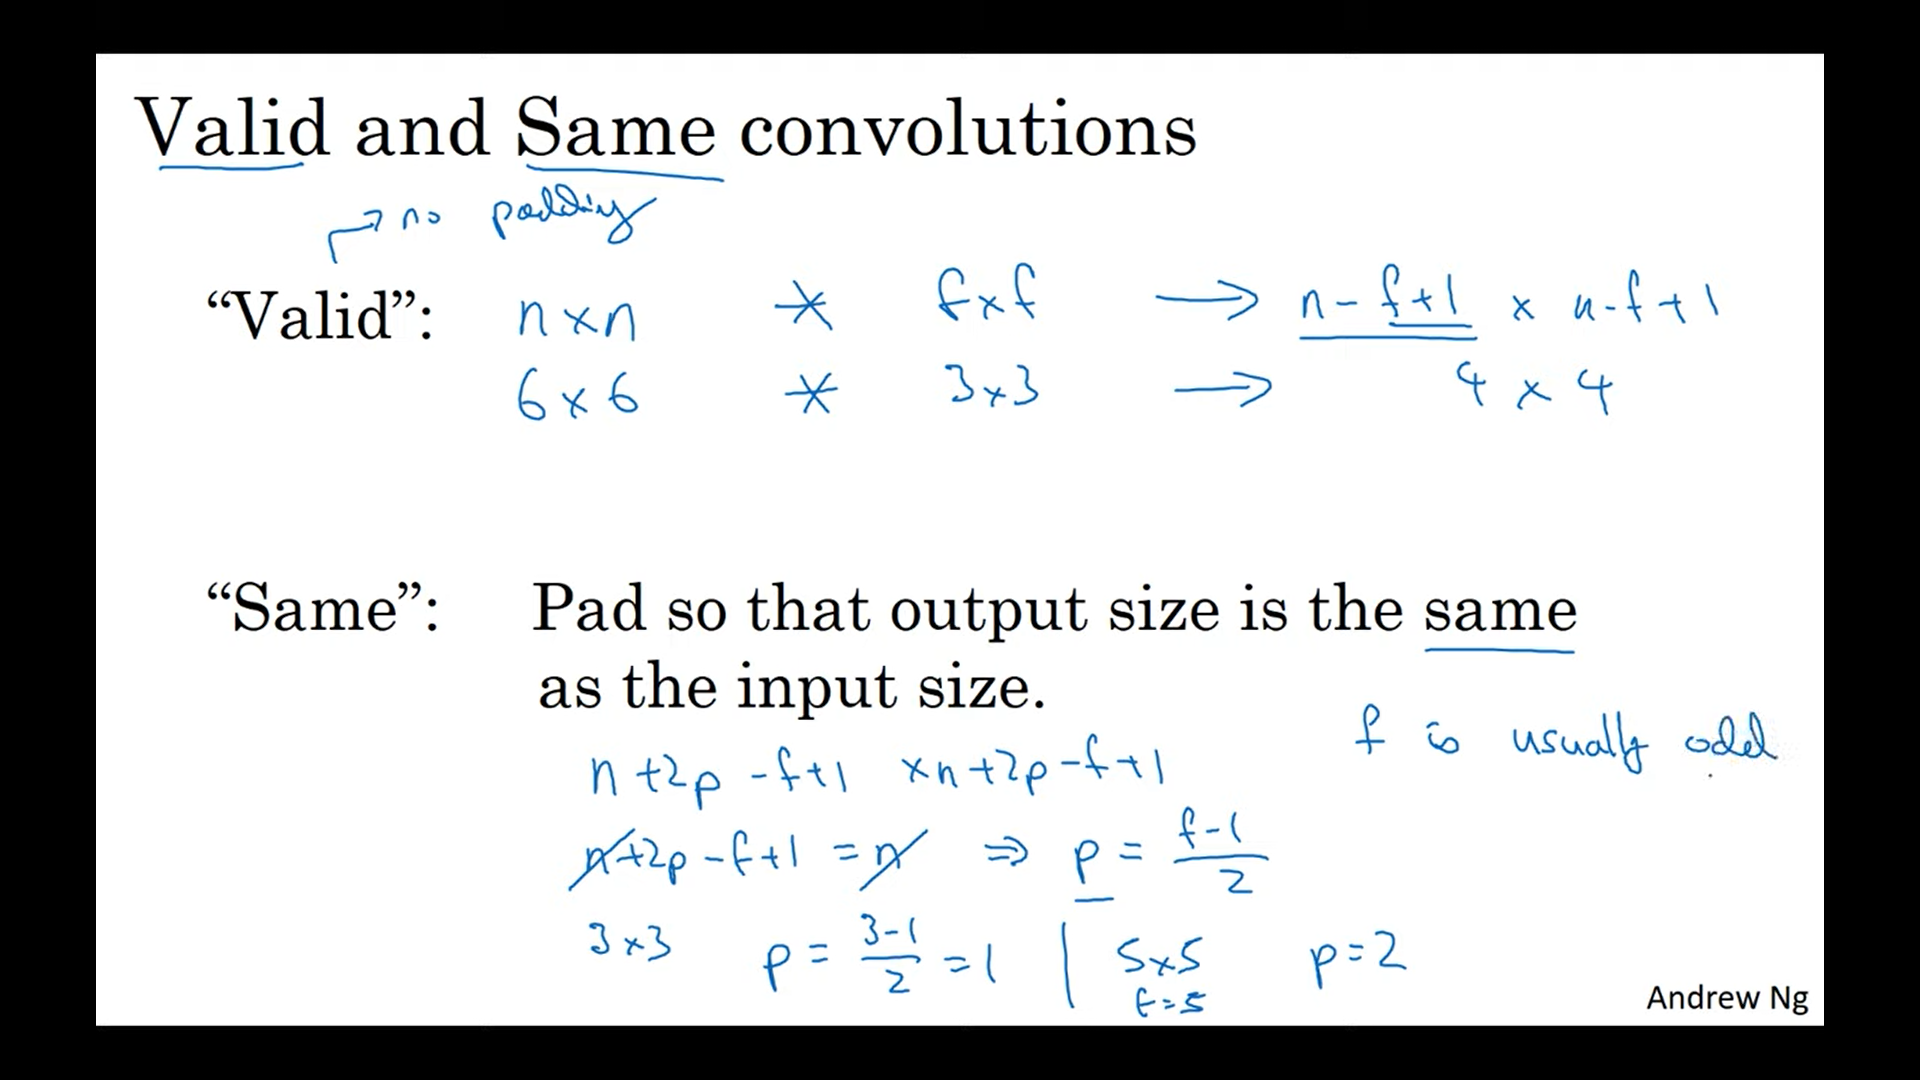 Valid and Same convolutions
→ no padding
“Valid”: n×n * f×f → n-f+1 × n-f+1
6×6 * 3×3 → 4×4
“Same”: Pad so that output size is the same
as the input size.
f is usually odd
n+2p-f+1 ×n+2p-f+1
n+2p-f+1 = n ⇒ p = f-1/2
3×3 p = 3-1/2 = 1 | 5×5 p=2
f=5
Andrew Ng